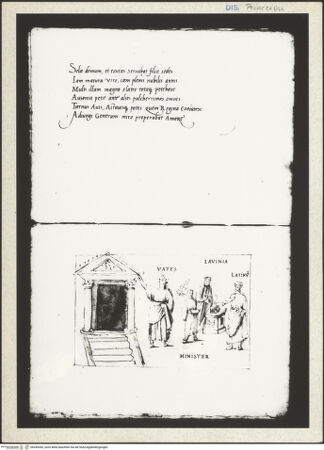 Sola domum, et tantas servabat filia sedes
Iam matura viro, iam plenis nubilis annis
Multi illam magno e latio totaq petebant
Ausonia petit ante alios pulcherrimus omnes
Turnus Avis, Atavisq potens quem Regina Coniunx
Adiungi Generum miro properabat Amore
VATES
LAVINIA
LATINV
MINISTER